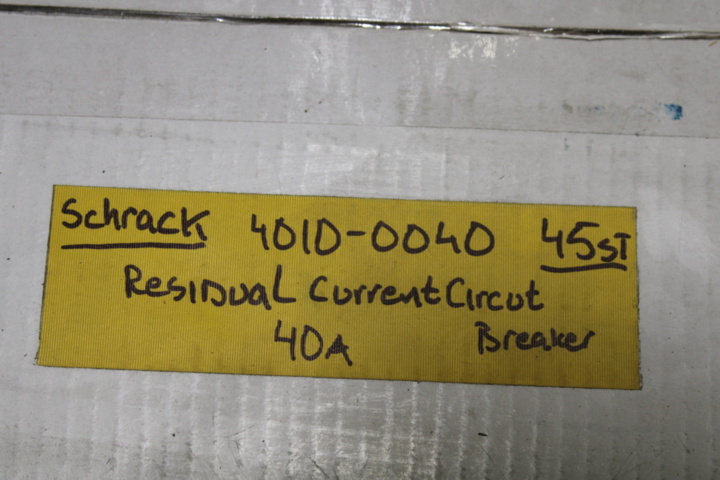 Schrack 401D-0040 45ST
Residual Current Circut
40A Breaker